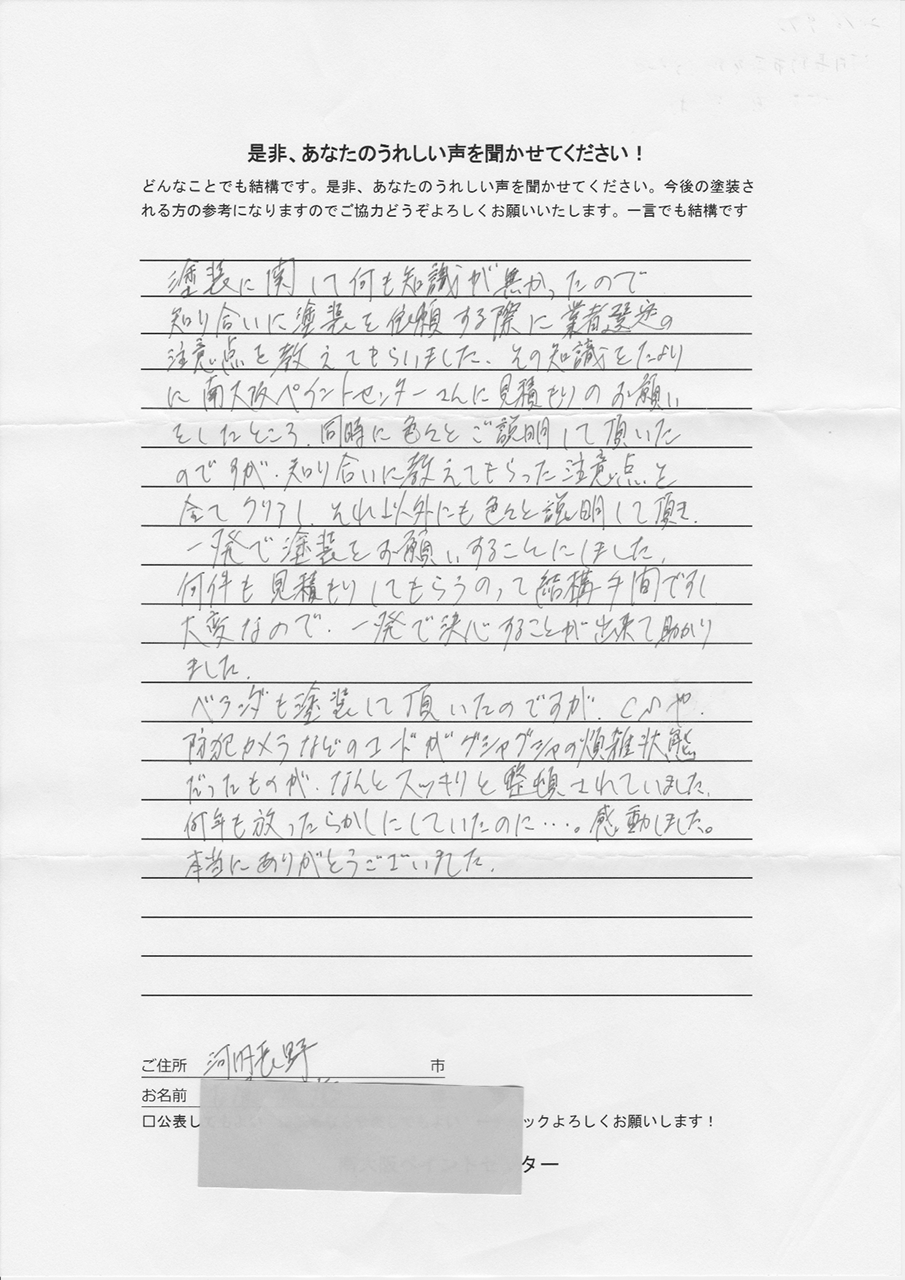 是非、あなたのうれしい声を聞かせてください！
どんなことでも結構です。是非、あなたのうれしい声を聞かせてください。今後の塗装さ
れる方の参考になりますのでご協力どうぞよろしくお願いいたします。一言でも結構です
塗装に関して何も知識が無かったので
知り合いに塗装を依頼する際に業者選定の
注意点を教えてもらいました、その知識をたより
に南大阪ペイントセンターさんに見積もりのお願い
をしたところ、同時に色々とご説明して頂いた
のですが、知り合いに教えてもらった注意点を
全てクリアし、それ以外にも色々と説明して頂き、
一発で塗装をお願いすることにしました、
何件も見積もりしてもらうのって結構手間ですし
大変なので、一発で決心することが出来て助かり
ました、
ベランダも塗装して頂いたのですが、CSや、
防犯カメラなどのコードがグシャグシャの煩雑状態
だったものが、なんとスッキリと整頓されていました、
何年も放ったらかしにしていたのに…。感動しました。
本当にありがとうございました、
ご住所 河内長野 市
お名前
□公表し ックよろしくお願いします！
ター